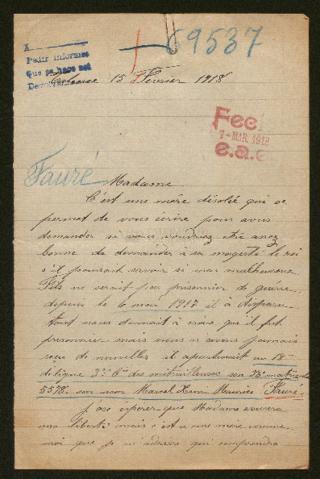 69537
Pedir informes
Que se hace
15 Février 1918
Fech
7-MAR. 1918
e.a.c
Fauré
Madame
C'est une mère désolée qui se
permet de vous écrire pour vous
demander si vous voudriez être assez
bonne de demander à sa magesté le roi
s'il pourrait savoir si mon malheureux
fils ne serait pas prisonnier de guerre
depuis le 6 mai 1917 il à disparu
tout nous donnait à croire que il fut
prisonnier mais nous n'avons jamais
reçu de nouvelles il appartenait au 18e
de ligne 3e Cie des mitrailleuses son No matricule
5578 son nom Marcel Jean Fauré.
J'ose espérer que Madame excusera
ma liberté mais c'est une mère comme
moi que je m'adresse qui comprendra